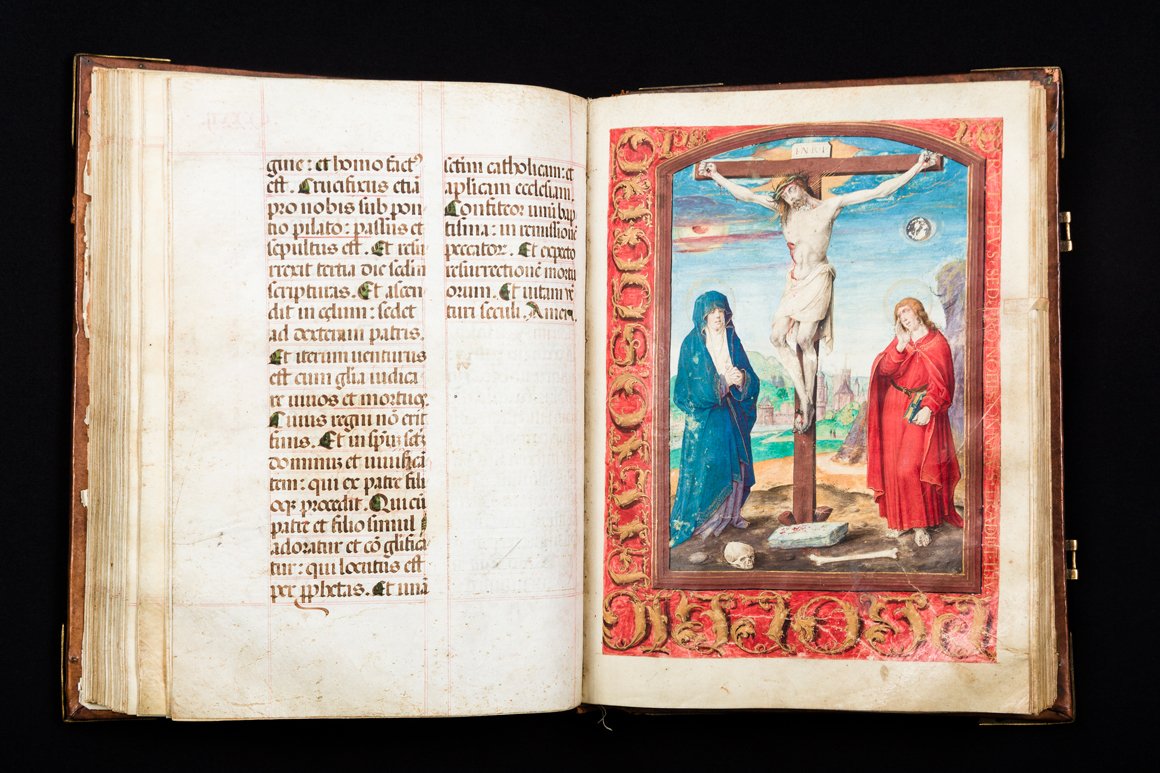 gine : et homo factꝰ
est . Crucifixus etiā
pro nobis sub pon
tio pilato : passus et
sepultus est . Et resu
rrexit tertia die sedm̄
scripturas . Et ascen
dit in cęlum : sedet
ad dexteram patris .
Et iterum uenturus
est cum gl̄ia iudica
re uiuos et mortuos
Cuius regni nō erit
finis . Et in spm̄ sctm̄
dominū et uiuificā
tem : qui ex patre fili
oqꝫ procedit . Qui cū
patre et filio simul
adoratur et cō glifica
tur : qui locutus est
per ꝓphetas . Et unā
sctam catholicam : et
aplicam ecclesiam .
Confiteor unū bap
tisma : in remissionē
peccatoꝝ . Et expecto
resurrectionē mortu
orum . Et uitam uē
turi seculi . Amen .
INRI
SED PRO NOBIS